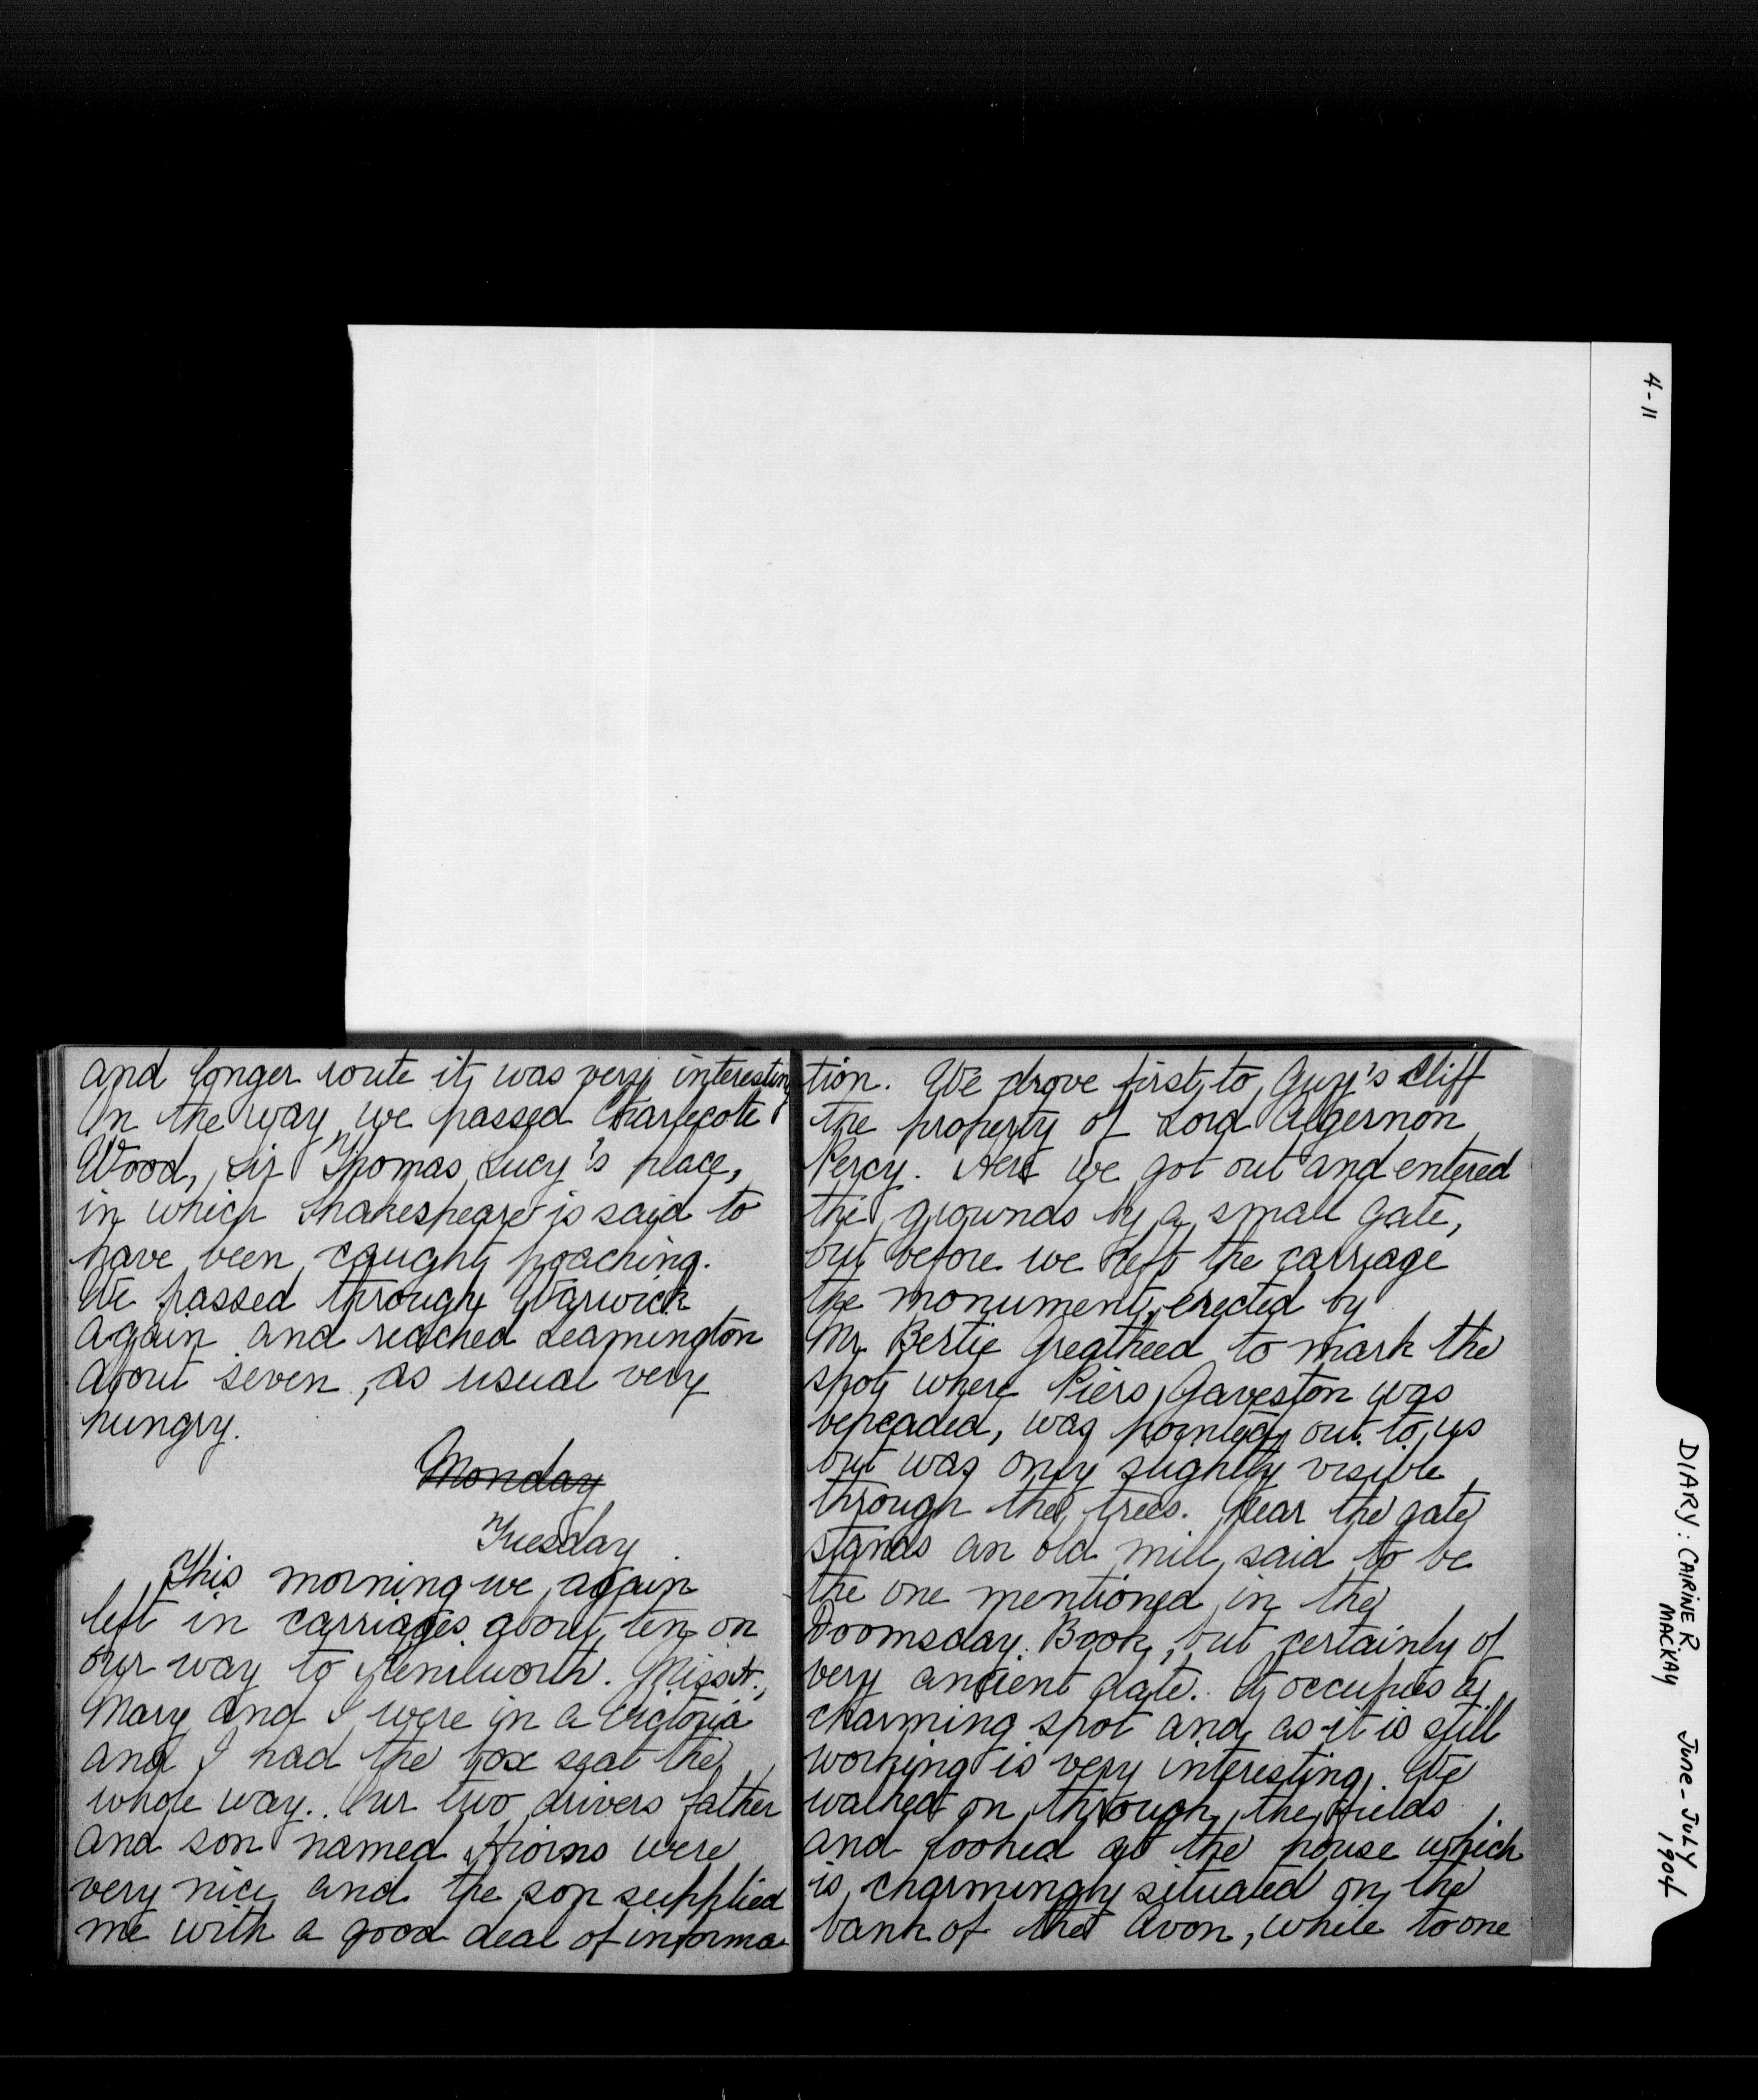 and longer route it was very interesting
On the way we passed Charlecote
Wood, Sir Thomas Lucy's place,
in which Shakespeare is said to
have been caught poaching.
We passed through Warwick
again and reached Leamington
about seven, as usual very
hungry.
Monday
Tuesday
This morning we again
left in carriages about ten on
our way to Kenilworth. Miss
Mary and I were in a Victoria
and I had the box seat the
whole way. Our two drivers father
and son named Hiorns were
very nice and the son supplied
me with a good deal of informa
tion. We drove first to Guy's Cliff
the property of Lord Algernon
Percy. Here we got out and entered
the grounds by a small gate,
but before we left the carriage
the monument, erected by
Mr. Bertie Greatheed to mark the
spot where Piers Gaveston was
beheaded, was pointed out to us
but was only slightly visible
through the trees. Near the gate
stands an old mill, said to be
the one mentioned in the
Doomsday Book, but certainly of
very ancient date. It occupies a
charming spot and as it is still
working is very interesting. We
walked on through the fields
and looked at the house which
is charmingly situated on the
bank of the Avon, while to one
4-11
DIARY: CAIRINE R
MACKAY
June - July
1904